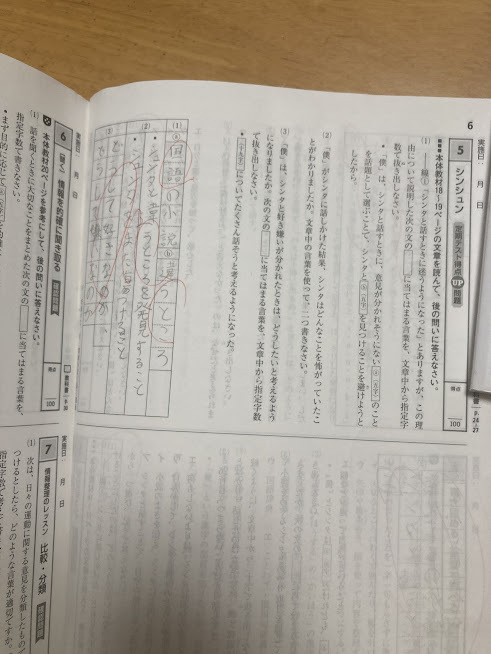 6
5 シンシュン 定期テスト得点UP問題
実施日 月 日
得点
100
P.24～27
本体教材18～19ページの文章を読んで、後の問いに答えなさい。
(1) ――線①「シンタと話すときに迷うようになった」とありますが、この理
由について説明した次の文の□に当てはまる言葉を、文章中から指定字
数で抜き出しなさい。
・「僕」は、シンタと話すときに、意見が分かれそうにないⓐ(五字)のこと
を話題として選ぶことで、シンタとⓑ(五字)を見つけることを避けようと
したから。
(2) 「僕」がシンタに話しかけた結果、シンタはどんなことを怖がっていたこ
とがわかりましたか。文章中の言葉を使って、二つ書きなさい。
(3) 「僕」は、シンタと好き嫌いが分かれたときは、どうしたいと考えるよう
になりましたか。次の文の□に当てはまる言葉を、文章中から指定字数
で抜き出しなさい。
についてたくさん話そうと考えるようになった。
(1) ⓐ 国語の小説 ⓑ 違うところ
(2)
6 〔聴く〕情報を的確に聞き取る
実施日 月 日
教科書
得点
100
本体教材20ページを参考にして、後の問いに答えなさい。
(1) 話を聞くときに大切なことをまとめた次の文の□に当てはまる言葉を、
指定字数で書きなさい。
7 情報整理のレッスン 比較・分類
実施日 月 日
(1) 次は、日々の運動に関する意見を分類したもの
つけるとしたら、どのような言葉が適切ですか。